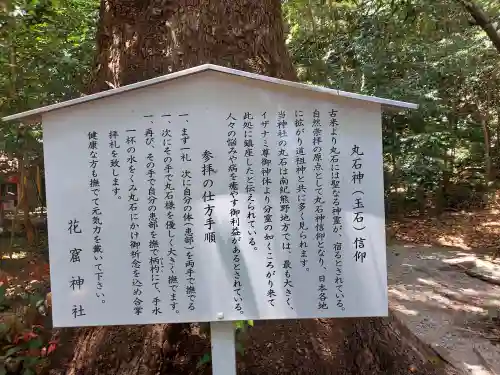 丸石神（玉石）信仰
古来より丸石には聖なる神霊が、宿るとされている。
自然崇拝の原点として丸石神信仰となり、日本各地
に拡がり道祖神と共に多く見られます。
当神社の丸石は南紀熊野地方では、最も大きく、
イザナミ尊御神体より分霊の如くころがり来て
此処に鎮座したと伝えられている。
人々の悩みや病を癒やす御利益があるとされている。
参拝の仕方手順
一、まず一礼 次に自分の体（患部）を両手で撫でる
一、次にその手で丸石様を優しく大きく撫でます。
一、再び、その手で自分の患部を撫で柄杓にて、手水
一杯の水をくみ丸石にかけ御祈念を込め合掌
拝礼を致します。
健康な方も撫でて元気力を戴いて下さい。
花窟神社